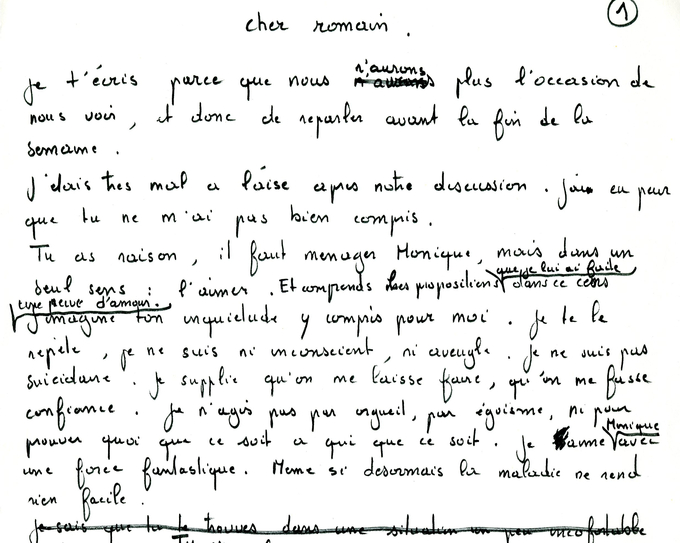 1
cher romain.
Je t'écris parce que nous n'aurons plus l'occasion de
nous voir, et donc de reparler avant la fin de la
semaine.
J'etais tres mal a l'aise apres notre discussion. J'ai eu peur
que tu ne m'ai pas bien compris.
Tu as raison, il faut menager Monique, mais dans un
seul sens : l'aimer. Et comprends les propositions que je lui ai faite dans ce cens
une preuve d'amour.
J'imagine ton inquietude y compris pour moi. Je te le
repète, je ne suis ni inconscient, ni aveugle. Je ne suis pas
suicidaire. Je supplie qu'on me laisse faire, qu'on me fasse
confiance. Je n'agis pas par orgueil, par égoisme, ni pour
prouver quoi que ce soit a qui que ce soit. Je aime Monique avec
une force fantastique. Meme si desormais la maladie ne rend
rien facile.
Je sais que tu te trouves dans une situation un peu inconfortable